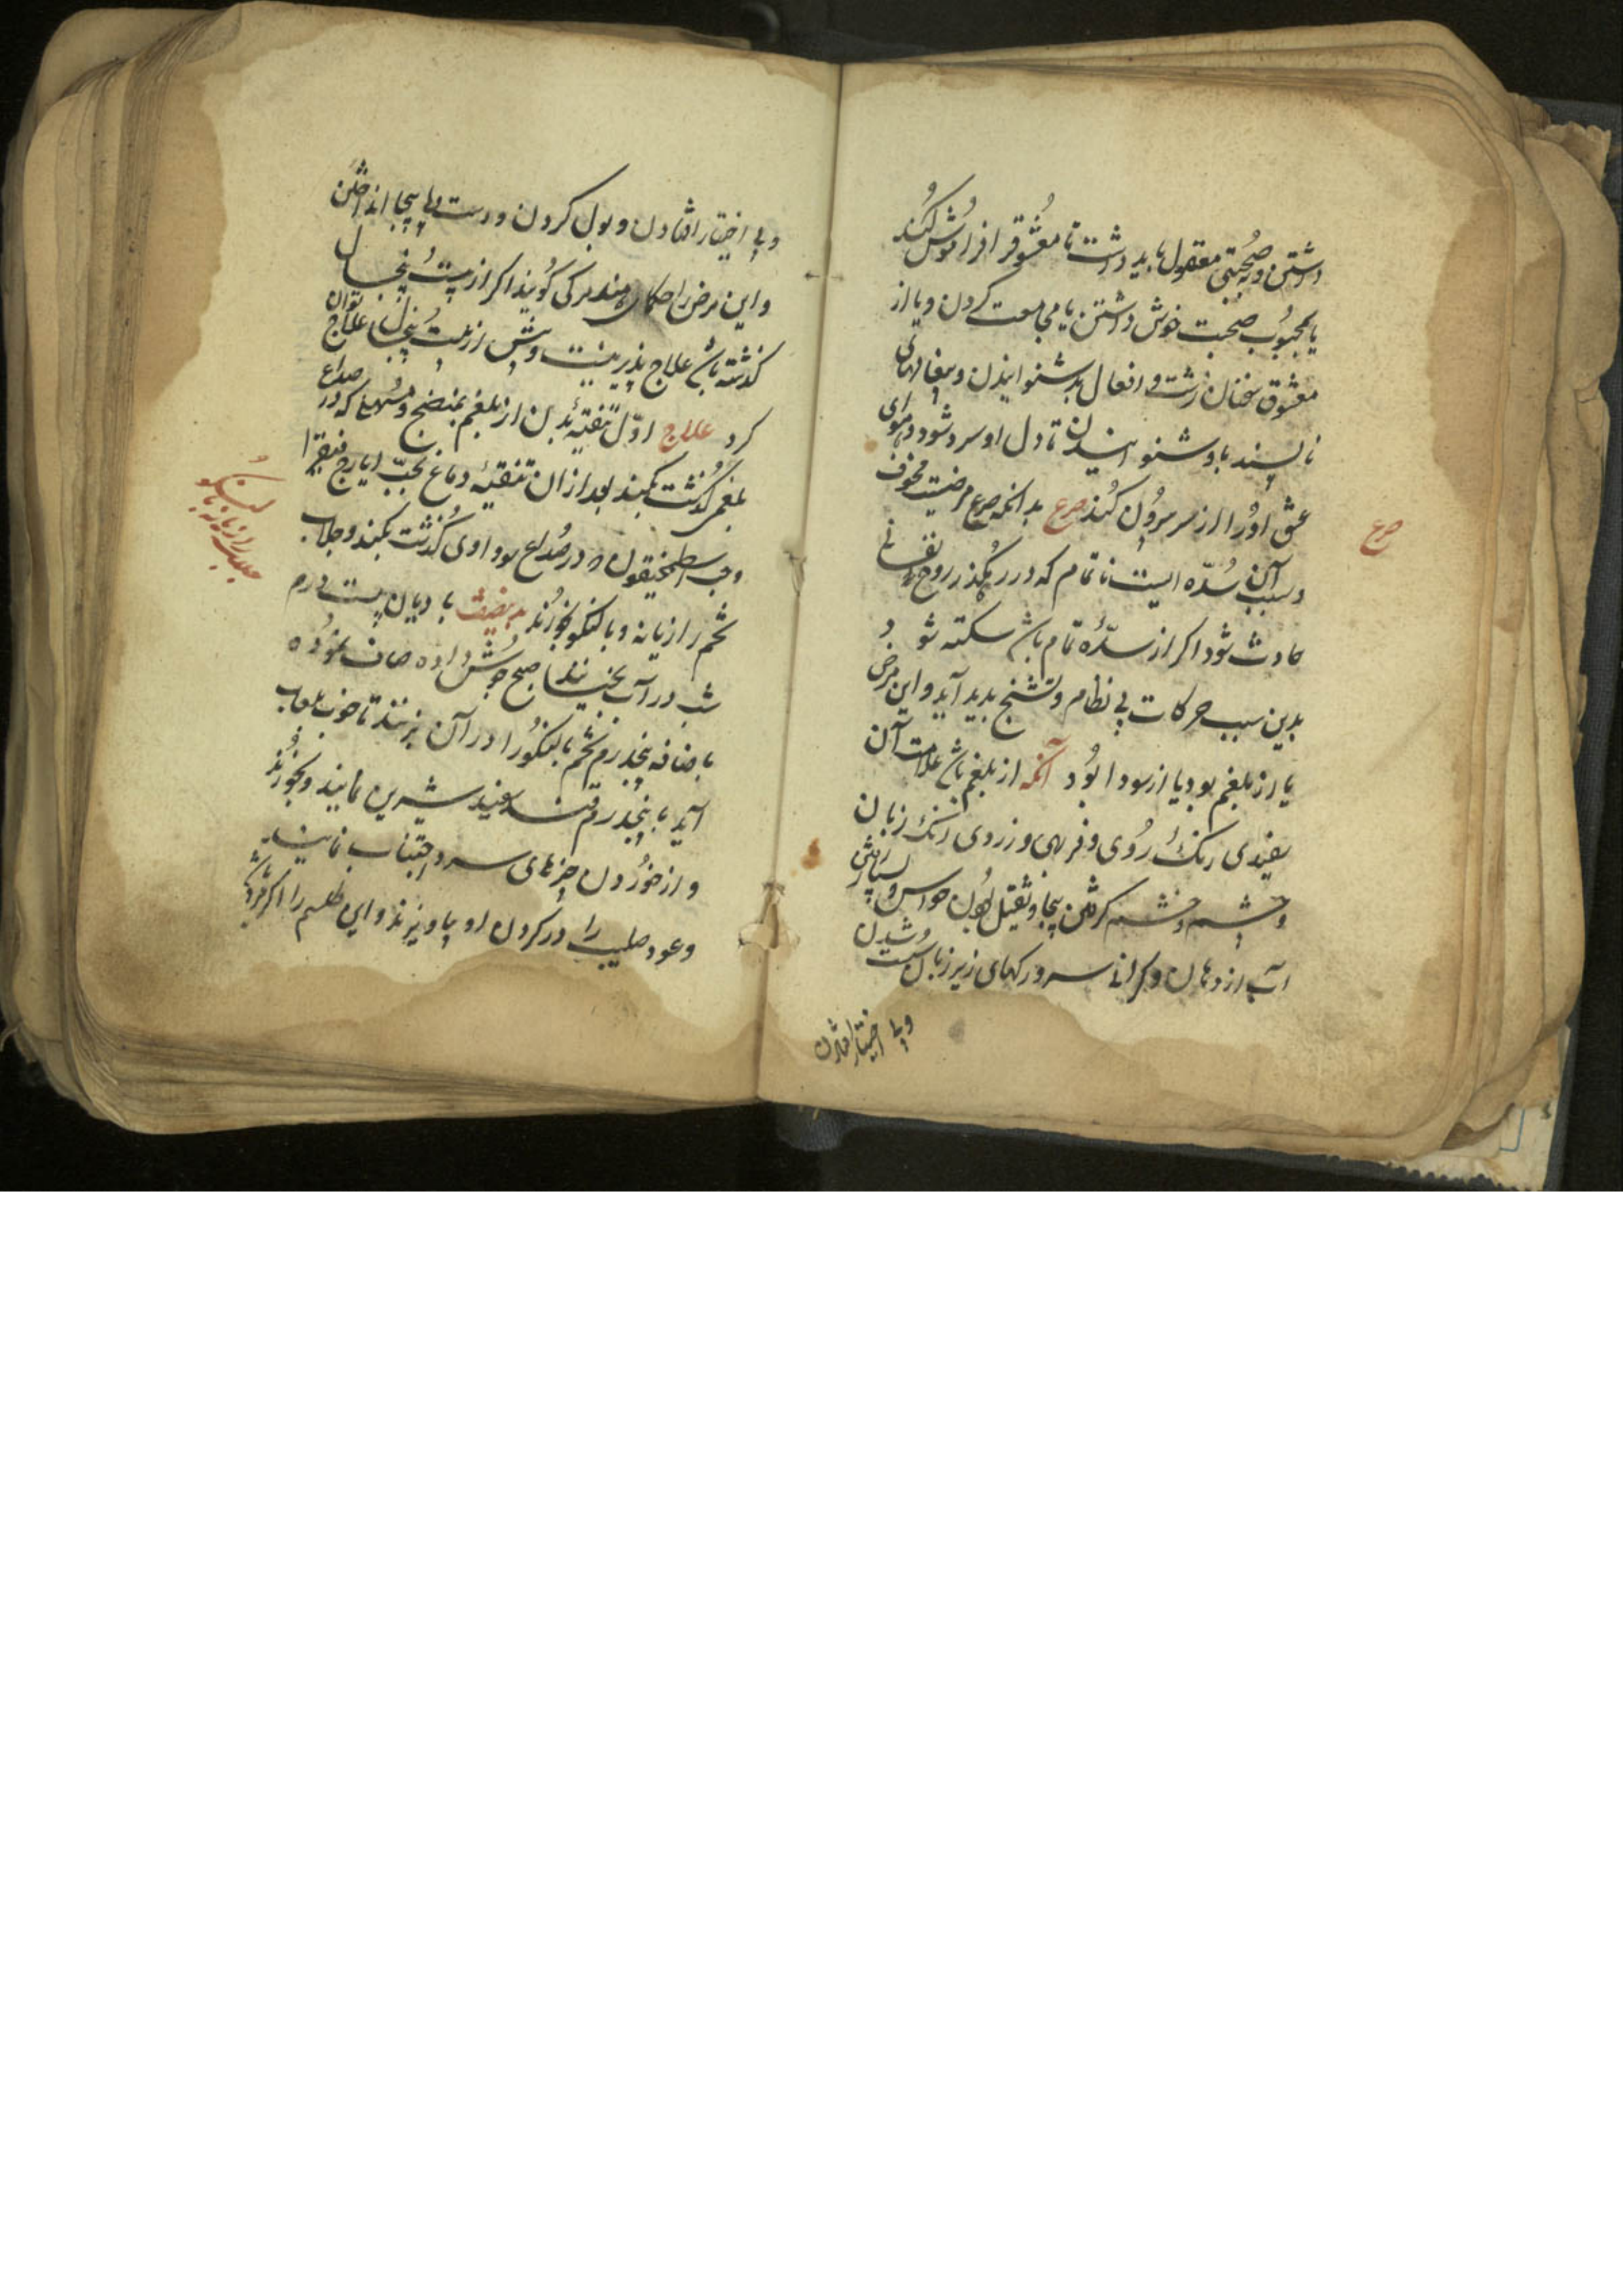 داشتن و به صحبتی معقول باید داشت تا معشوق را فراموش کند
یا بمحبوب صحبت خوش داشتن یا مجامعت کردن و یا از
معشوق سخنان زشت و افعال بد شنوانیدن و پیغامهای
ناپسند با و شنوانیدن تا دل او سرد شود و هوای
عشق او را از سر بیرون کند صرع بدانکه صرع مرضیست مخوف
و سبب آن سُدّه ایست ناتمام که در رهگذر روح نفسانی
حادث شود اگر از سدّهٔ تمام باشد سکته شود
بدین سبب حرکات بی نظام و تشنج بدید آید و این مرض
یا از بلغم بود یا از سودا بُود آنکه از بلغم باشد علامت آن
سفیدی رنک رُوی و فربهی و زردی رنک زبان
و چشم و خشم کرفتن بیجا و ثقیل بودن حواس و بسیار رفتن
آب از دهان و کرانی سر و رکهای زیر زبان شدن
و بی اختیار افتادن
صرع
و بی اختیار افتادن و بول کردن و دست و پا بیجا انداختن
و این مرض را حکمای هند مرکی کویند اکر از بیست و پنج سال
کذشته باشد علاج پذیر نیست و پیش از بیست و پنج سال علاج توان
کرد علاج اوّل تنقیهٔ بدن از بلغم بمنضج و مسهل که در صداع
بلغمی کذشت بکنند بعد از ان تنقیهٔ دماغ بحبّ ایارج فیقرا
و حب اسطمخیقون که در صُداع بود اوی کُذشت بکنند و جلاب
تخم رازیانه و بالنکو بخورند بدینصفت بادیان بیست درم
شب در آب بخیسانند صبح جوش داده صاف نموده
باضافه پنجدرم تخم بالنکو را در آن بزنند تا خوب بلعاب
آید با پنجدرم قند سفید شیرین نمایند و بخورند
و از خوردن چیزهای سرد اجتناب نمایند
و عود صلیب را در کردن او بیاویزند و این طلسم را اکر
جلاب رازیانه با
بالنکو